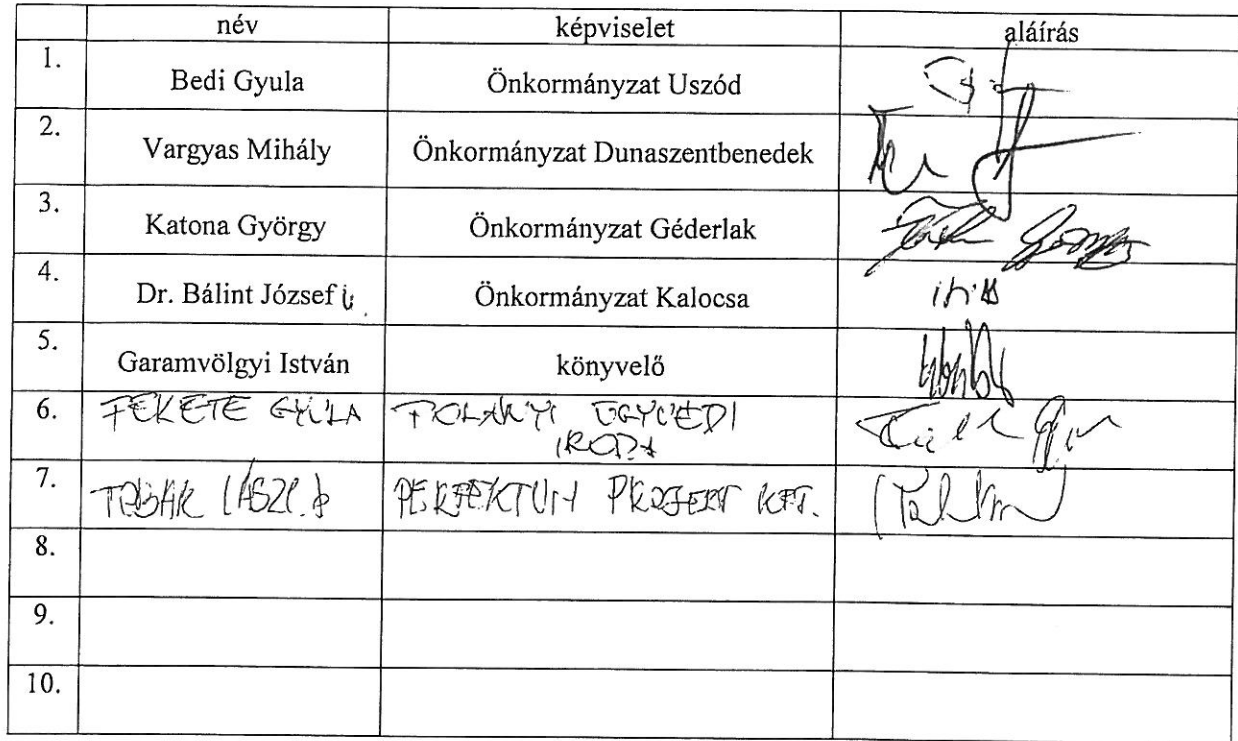 név képviselet aláírás
1. Bedi Gyula Önkormányzat Uszód
2. Vargyas Mihály Önkormányzat Dunaszentbenedek
3. Katona György Önkormányzat Géderlak
4. Dr. Bálint József Önkormányzat Kalocsa
5. Garamvölgyi István könyvelő
6. FEKETE GYULA POLÁNYI ÜGYVÉDI
IRODA
7. TABÁK LÁSZLÓ PERFEKTUM PROJEKT KFT.
8.
9.
10.